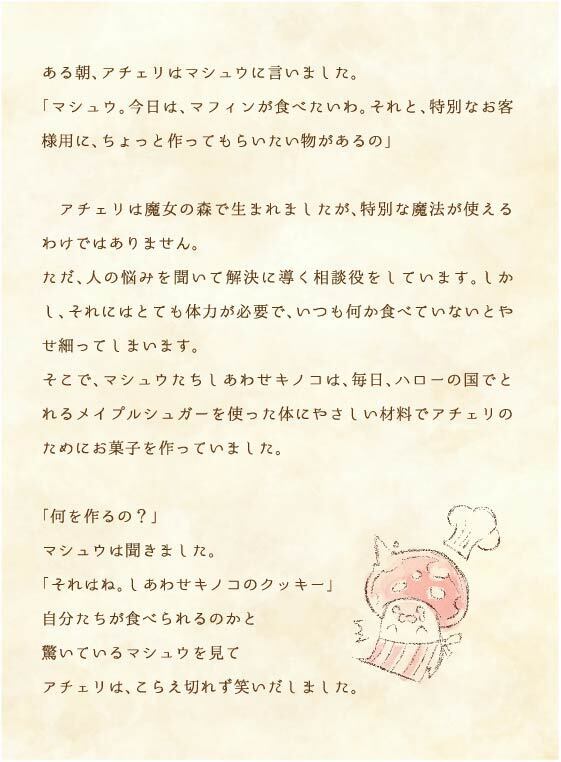 ある朝、アチェリはマシュウに言いました。
「マシュウ。今日は、マフィンが食べたいわ。それと、特別なお客
様用に、ちょっと作ってもらいたい物があるの」
アチェリは魔女の森で生まれましたが、特別な魔法が使える
わけではありません。
ただ、人の悩みを聞いて解決に導く相談役をしています。しか
し、それにはとても体力が必要で、いつも何か食べていないとや
せ細ってしまいます。
そこで、マシュウたちしあわせキノコは、毎日、ハローの国でと
れるメイプルシュガーを使った体にやさしい材料でアチェリの
ためにお菓子を作っていました。
「何を作るの？」
マシュウは聞きました。
「それはね。しあわせキノコのクッキー」
自分たちが食べられるのかと
驚いているマシュウを見て
アチェリは、こらえ切れず笑いだしました。